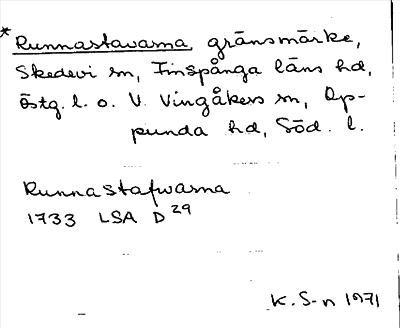 *Runnastavarna, gränsmärke,
Skedevi sn, Finspånga läns hd,
Östg. l. o. V. Vingåkers sn, Op-
punda hd, Söd. l.
Runnastafwarna
1733 LSA D 29
K. S-n 1971